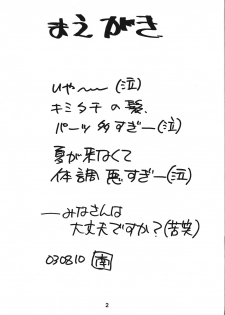 まえがき
いやー(泣)
キミタチの髪、
パーツ多すぎー(泣)
夏が来なくて
体調悪すぎー(泣)
―みなさんは
大丈夫ですか?(苦笑)
030810 南
2